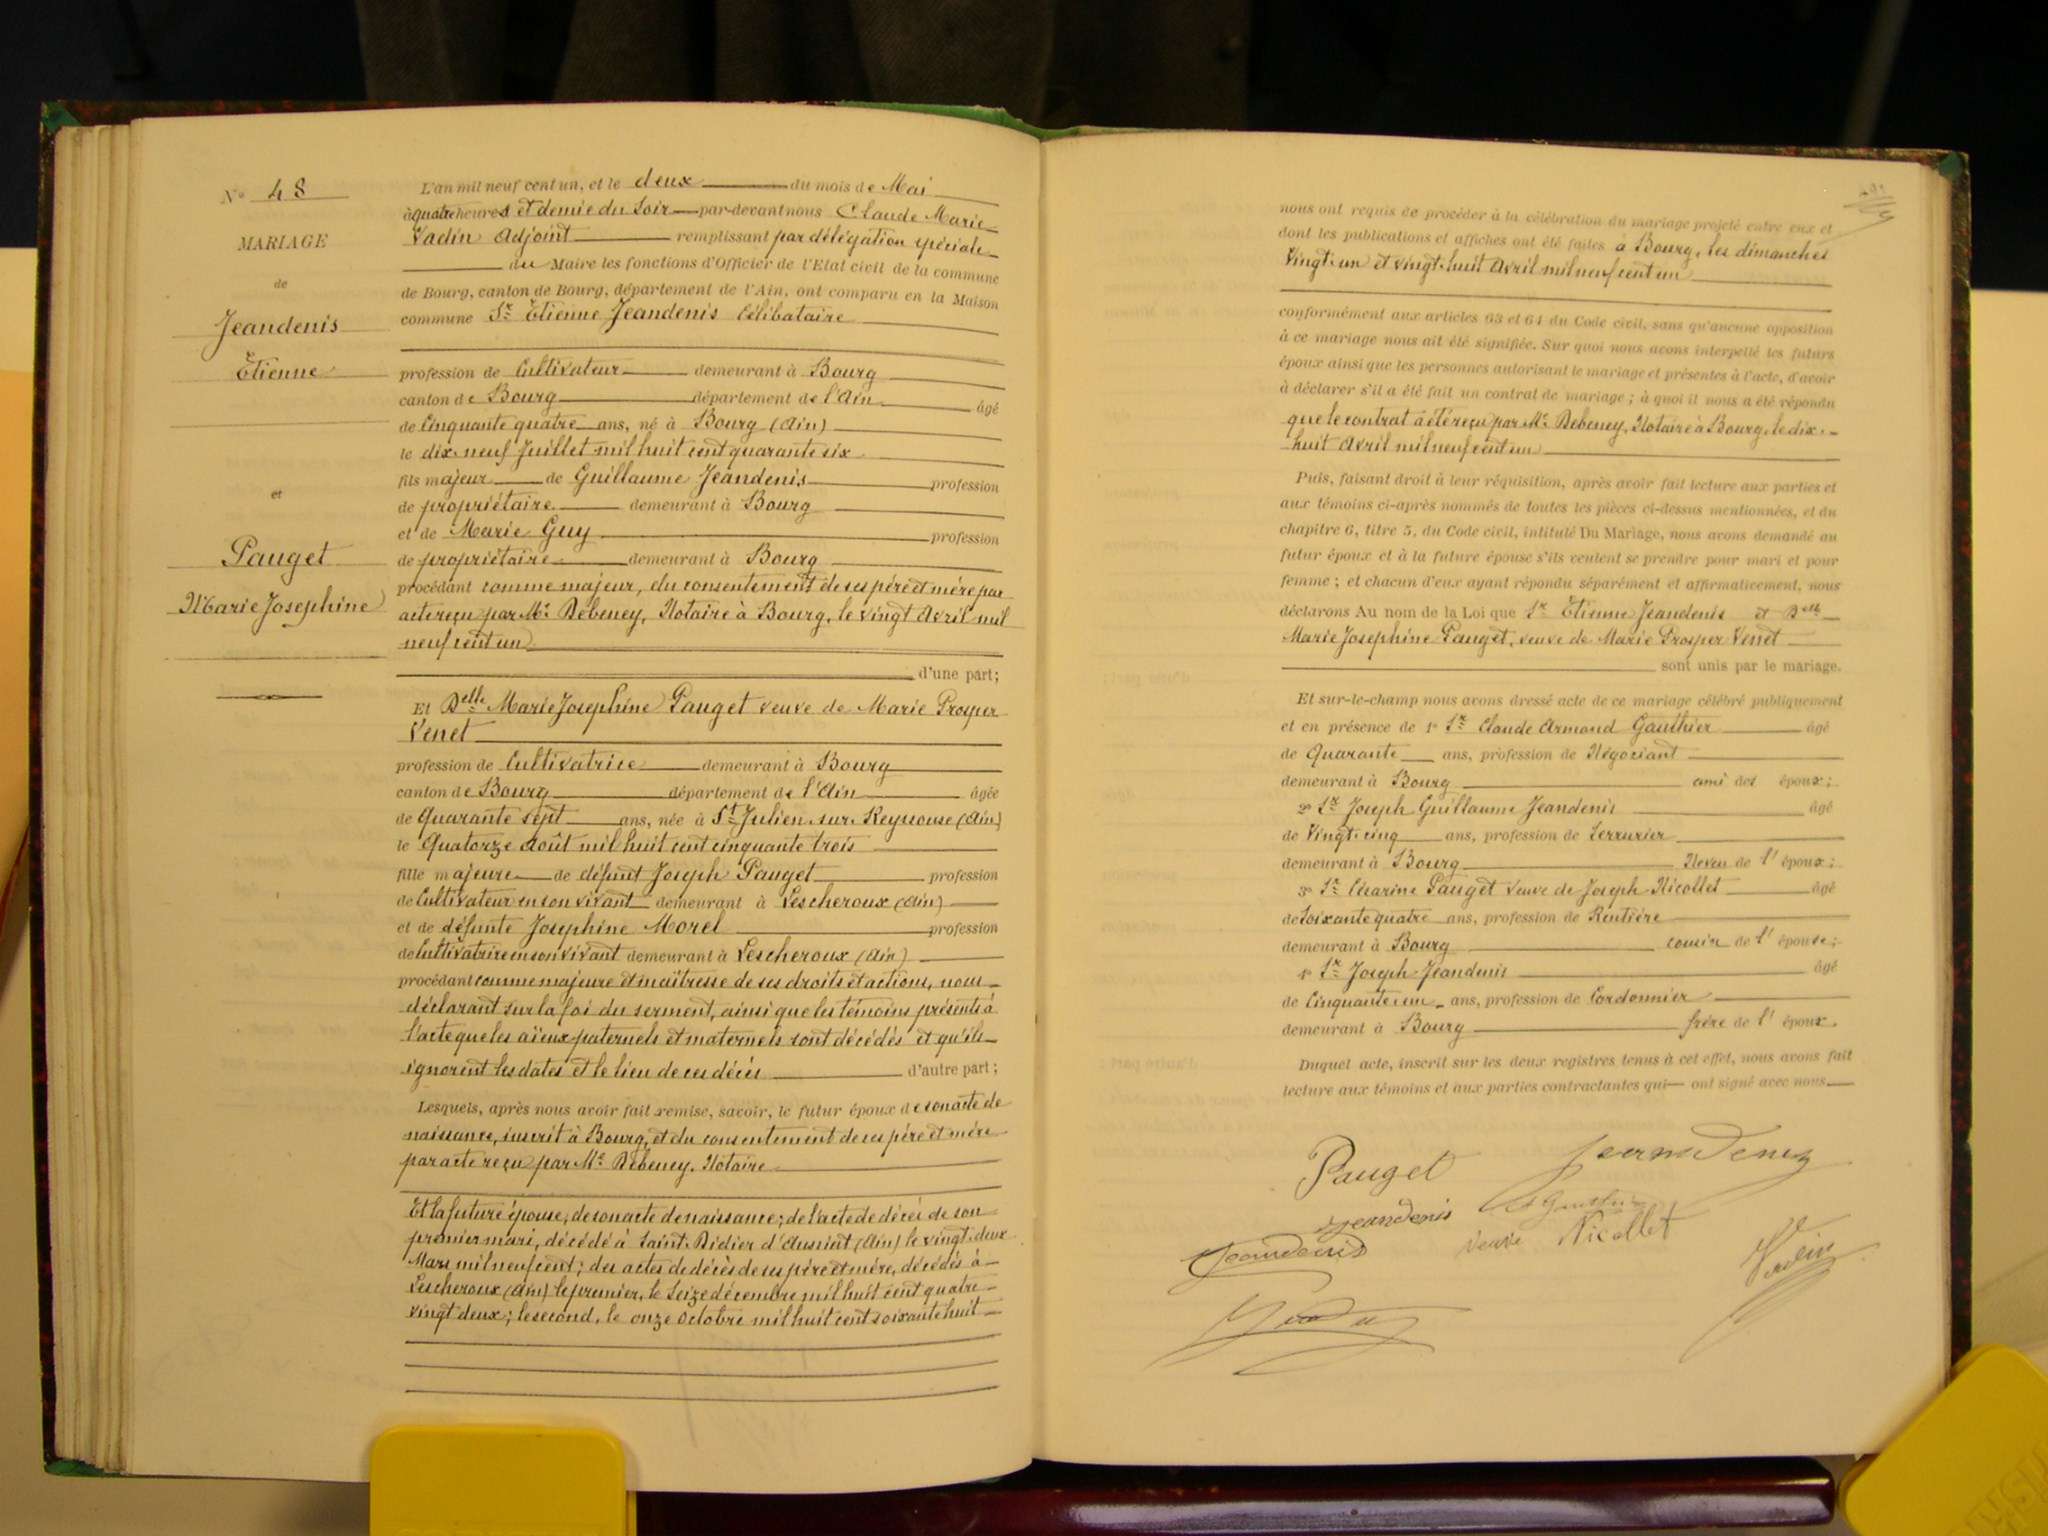 N° 48
MARIAGE
de
Jeandenis
Etienne
et
Pauget
Marie Josephine
L'an mil neuf cent un, et le deux du mois de Mai
à quatre heures et demie du soir par-devant nous Claude Marie
Vadin Adjoint remplissant par délégation spéciale
du Maire les fonctions d'Officier de l'Etat civil de la commune
de Bourg, canton de Bourg, département de l'Ain, ont comparu en la Maison
commune Sr Etienne Jeandenis Célibataire
profession de Cultivateur demeurant à Bourg
canton de Bourg département de l'Ain âgé
de Cinquante quatre ans, né à Bourg (Ain)
le dix-neuf Juillet mil huit cent quarante six
fils majeur de Guillaume Jeandenis profession
de propriétaire demeurant à Bourg
et de Marie Guy profession
de propriétaire demeurant à Bourg
procédant comme majeur, du consentement de ses père et mère par
acte reçu par Me Debeney, Notaire à Bourg, le vingt Avril mil
neuf cent un
d'une part;
Et Delle Marie Josephine Pauget veuve de Marie Prosper
Venet
profession de Cultivatrice demeurant à Bourg
canton de Bourg département de l'Ain âgée
de Quarante sept ans, née à St Julien-sur-Reyssouse (Ain)
le Quatorze Août mil huit cent cinquante trois
fille majeure de défunt Joseph Pauget profession
de Cultivateur en son vivant demeurant à Lescheroux (Ain)
et de défunte Josephine Morel profession
de Cultivatrice en son vivant demeurant à Lescheroux (Ain)
procédant comme majeure et maîtresse de ses droits et actions, nous
déclarant sur la foi du serment, ainsi que les témoins présents à
l'acte que les aïeux paternels et maternels sont décédés et qu'ils
ignorent les dates et le lieu de ces décès d'autre part;
Lesquels, après nous avoir fait remise, savoir, le futur époux de son acte de
naissance, inscrit à Bourg, et du consentement de ses père et mère
par acte reçu par Me Debeney, Notaire
Et la future épouse, de son acte de naissance; de l'acte de décès de son
premier mari, décédé à Saint-Didier d'Aussiat (Ain) le vingt-deux
Mars mil neuf cent; des actes de décès de ses père et mère, décédés à
Lescheroux (Ain) le premier, le Seize décembre mil huit cent quatre
vingt deux; le second, le onze Octobre mil huit cent soixante huit
nous ont requis de procéder à la célébration du mariage projeté entre eux et
dont les publications et affiches ont été faites à Bourg, les dimanches
Vingt-un et vingt-huit Avril mil neuf cent un
conformément aux articles 63 et 64 du Code civil, sans qu'aucune opposition
à ce mariage nous ait été signifiée. Sur quoi nous avons interpellé les futurs
époux ainsi que les personnes autorisant le mariage et présentes à l'acte, d'avoir
à déclarer s'il a été fait un contrat de mariage; à quoi il nous a été répondu
que le contrat a été reçu par Me Debeney, Notaire à Bourg, le dix-
huit Avril mil neuf cent un
Puis, faisant droit à leur réquisition, après avoir fait lecture aux parties et
aux témoins ci-après nommés de toutes les pièces ci-dessus mentionnées, et du
chapitre 6, titre 5, du Code civil, intitulé Du Mariage, nous avons demandé au
futur époux et à la future épouse s'ils veulent se prendre pour mari et pour
femme; et chacun d'eux ayant répondu séparément et affirmativement, nous
déclarons Au nom de la Loi que Sr Etienne Jeandenis et Delle
Marie Josephine Pauget, veuve de Marie Prosper Venet
sont unis par le mariage.
Et sur-le-champ nous avons dressé acte de ce mariage célébré publiquement
et en présence de 1° Sr Claude Armand Gauthier âgé
de Quarante ans, profession de Négociant
demeurant à Bourg ami des époux;
2° Sr Joseph Guillaume Jeandenis âgé
de Vingt-cinq ans, profession de Serrurier
demeurant à Bourg Neveu de l'époux;
3° Sr Césarine Pauget veuve de Joseph Nicollet âgé
de Soixante quatre ans, profession de Rentière
demeurant à Bourg cousin de l'épouse;
4° Sr Joseph Jeandenis âgé
de Cinquante un ans, profession de Cordonnier
demeurant à Bourg frère de l'époux.
Duquel acte, inscrit sur les deux registres tenus à cet effet, nous avons fait
lecture aux témoins et aux parties contractantes qui ont signé avec nous
Pauget
Jeandenis
Jeandenis
Gauthier
Jeandenis
veuve Nicollet